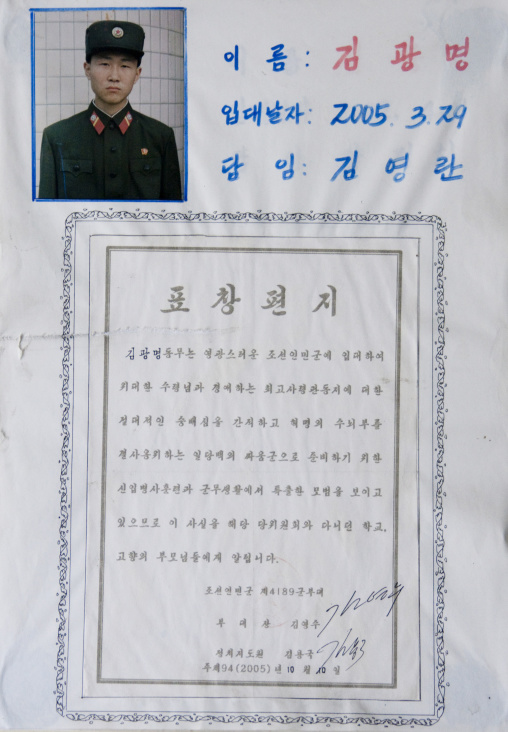 이 름: 김 광 명
입대날자: 2005. 3. 29
담 임: 김 영 란
표 창 편 지
김광명동무는 영광스러운 조선인민군에 입대하여
위대한 수령님과 경애하는 최고사령관동지에 대한
절대적인 숭배심을 간직하고 혁명의 수뇌부를
결사옹위하는 일당백의 싸움군으로 준비하기 위한
신입병사훈련과 군무생활에서 특출한 모범을 보이고
있으므로 이 사실을 해당 당위원회와 다니던 학교,
고향의 부모님들에게 알립니다.
조선인민군 제4189군부대
부 대 장 김영수
정치지도원
주체94(2005)년 10 월 10 일